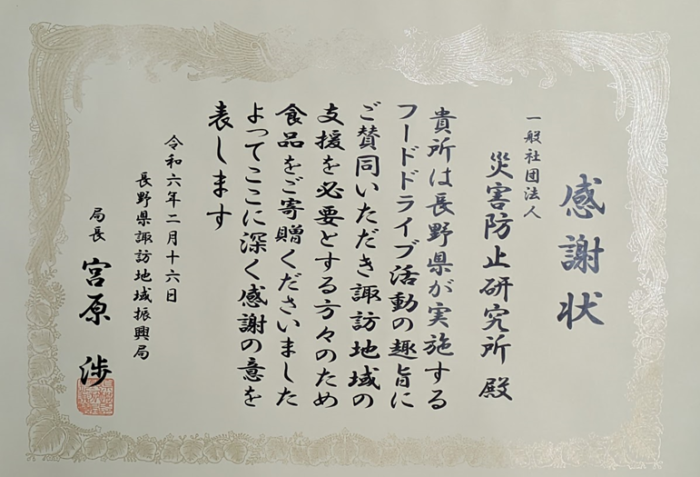 感謝状
一般社団法人
災害防止研究所 殿
貴所は長野県が実施する
フードドライブ活動の趣旨に
ご賛同いただき諏訪地域の
支援を必要とする方々のため
食品をご寄贈くださいました
よってここに深く感謝の意を
表します
令和六年二月十六日
長野県諏訪地域振興局
局長 宮原 渉